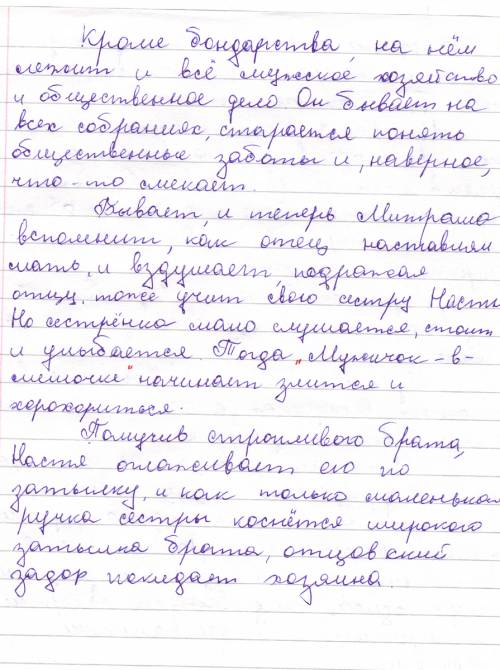 Кроме бондарства, на нём
лежит и всё мужское хозяйство
и общественное дело. Он бывает на
всех собраниях, старается понять
общественные заботы и, наверное,
что-то смекает.
Бывает, и теперь Митраша
вспомнит, как отец наставлял
мать, и вздумает, подражая
отцу, тоже учит свою сестру Настю
Но сестрёнка мало слушается, стоит
и улыбается. Тогда „Мужичок-в-
мешочке" начинает злится и
хорохориться.
Помучив строптивого брата,
Настя оглаживает его по
затылку, и как только маленькая
ручка сестры коснётся широкого
затылка брата, отцовский
задор покидает хозяина.